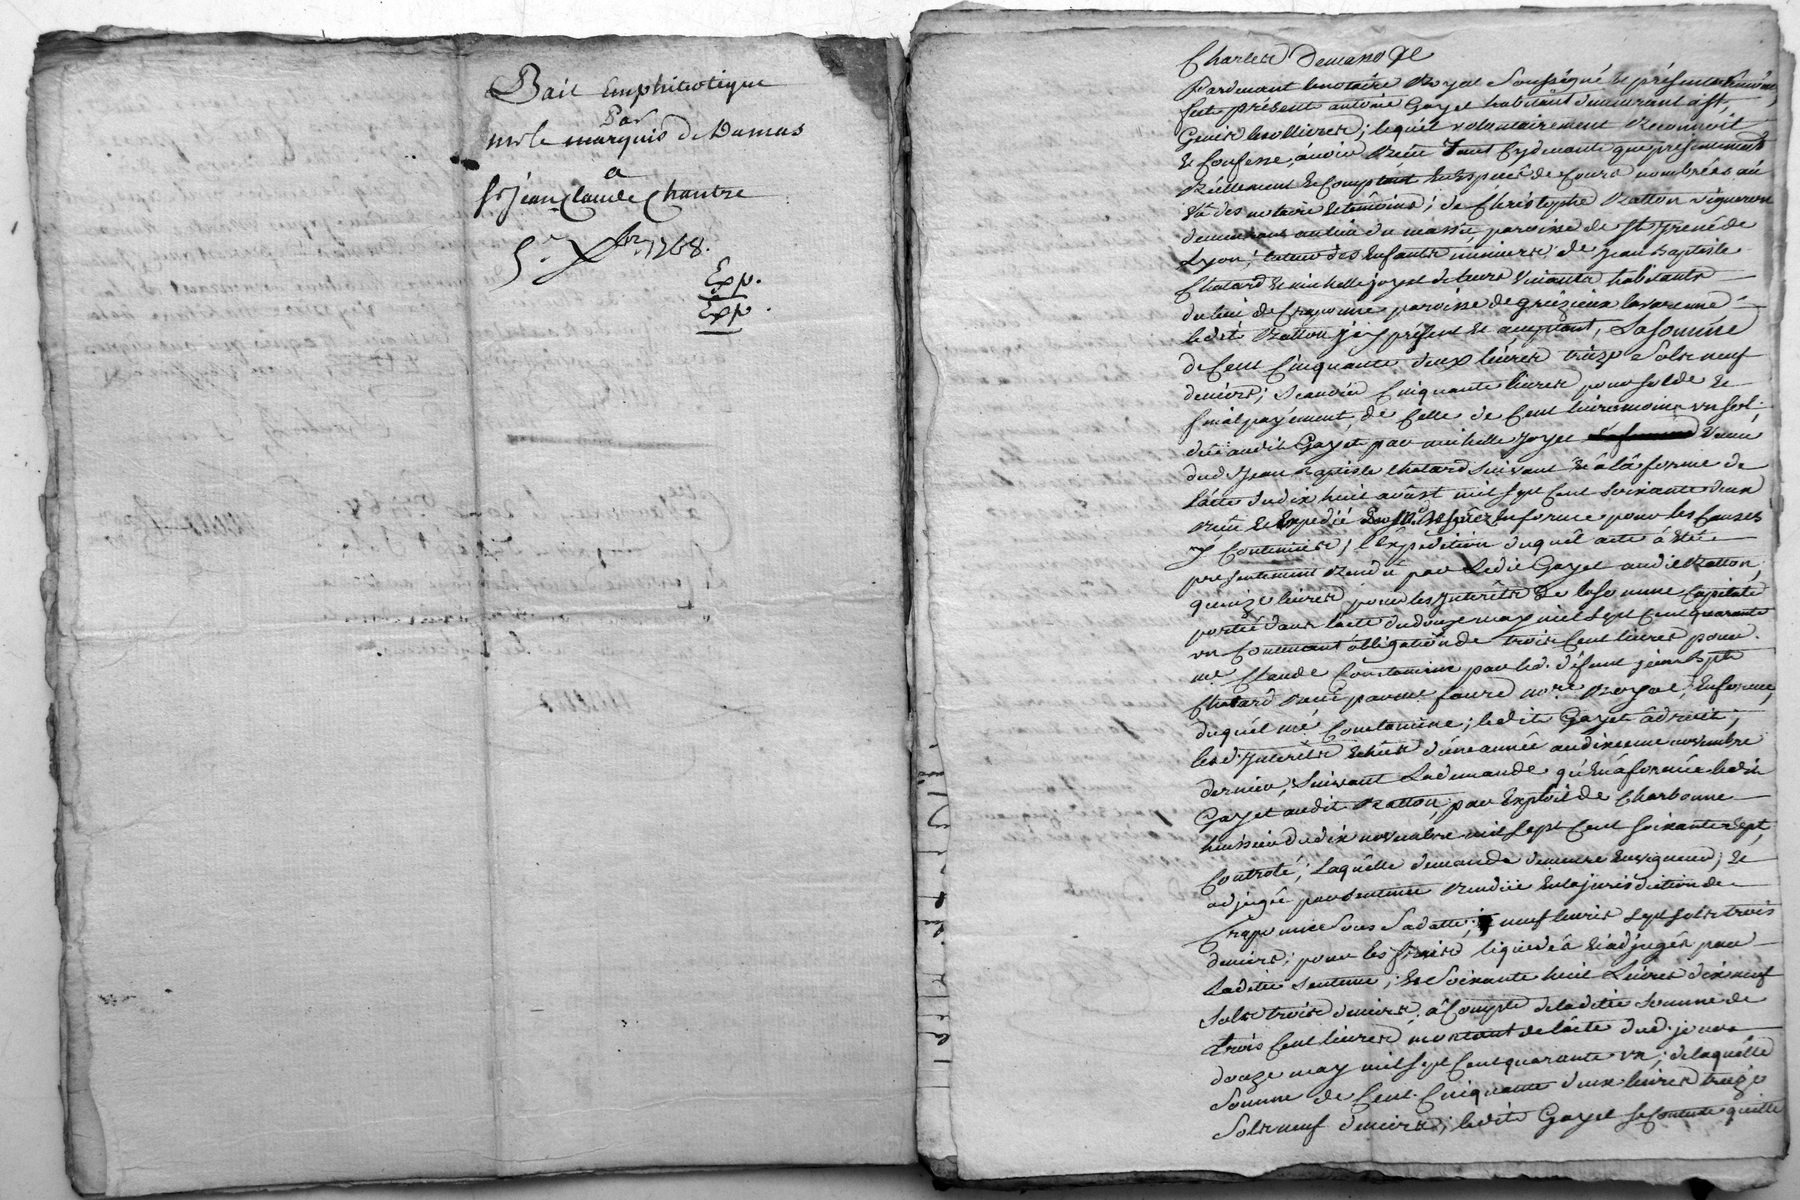 Bail Emphiteotique
Par
mr le marquis de Damas
a
Sr jean Claude Chantre
5e. Xbre. 1768.
Exp.
Exp.
Pardevant le notaire Royal soussigné et présents témoins,
fut présent antoine Gayet habitant demeurant a St.
Genis les ollieres; lequel volontairement Reconnoit
et Confesse, avoir Recu tant Cydevant que presentement
Réellement et Comptant en Espèces de Cours nombrées au
Vû des notaire et témoins; de Christophe Ratton vigneron
demeurant au lieu du massu, paroisse de St Irenée de
Lyon; tuteur des Enfants mineurs de jean Baptiste
Chatard et michelle joyet de leurs vivants habitants
du lieu de Craponne paroisse de Grezieux lavarenne
ledit Ratton icy présent et acceptant, La somme
de Cent Cinquante deux livres treize Sols neuf
deniers; Scavoir Cinquante livres pour solde et
final payement, de Celle de Cent livres moins un sol
due audit Gayet par michelle joyet veuve
dud. Jean Baptiste Chatard suivant et à la forme de
l'acte du dix huit avûst mil sept Cent soixante deux
Recu et Expedié en forme pour les Causes
y Contenues; l'expedition duquel acte a Eté
presentement Rendüe par Ledit Gayet audit Ratton;
quinze livres pour les Interêts de la somme Capitale
portée dans l'acte du douze may mil sept Cent quarante
un Contenant obligation de trois Cent livres pour
me. Claude Constamine par led. défunt jean Bpte
Chatard Recu par me faure nore. Royal, En forme,
duquel me. Constamine; ledit Gayet à droit;
lesd. Interêts Echus d'une année au dixieme novembre
dernier, Suivant La demande qu'En a formée ledit
Gayet audit Ratton, par Exploit de Charbonne
huissier du dix novembre mil sept Cent soixante sept,
Controlé; Laquelle demande demeure En vigueur; et
adjugée par sentence Rendüe En la jurisdiction de
Craponne sous sa datte; neuf livres sept sols trois
deniers; pour les frais liquidés et adjugés par
Ladite sentence; et Soixante huit Livres dix neuf
Sols trois deniers à Compte de ladite somme de
trois Cent livres montant de l'acte dud. jour
douze may mil sept Cent quarante un; de laquelle
Somme de Cent Cinquante deux livres treize
Sols neuf deniers, ledit Gayet se Contente quitte